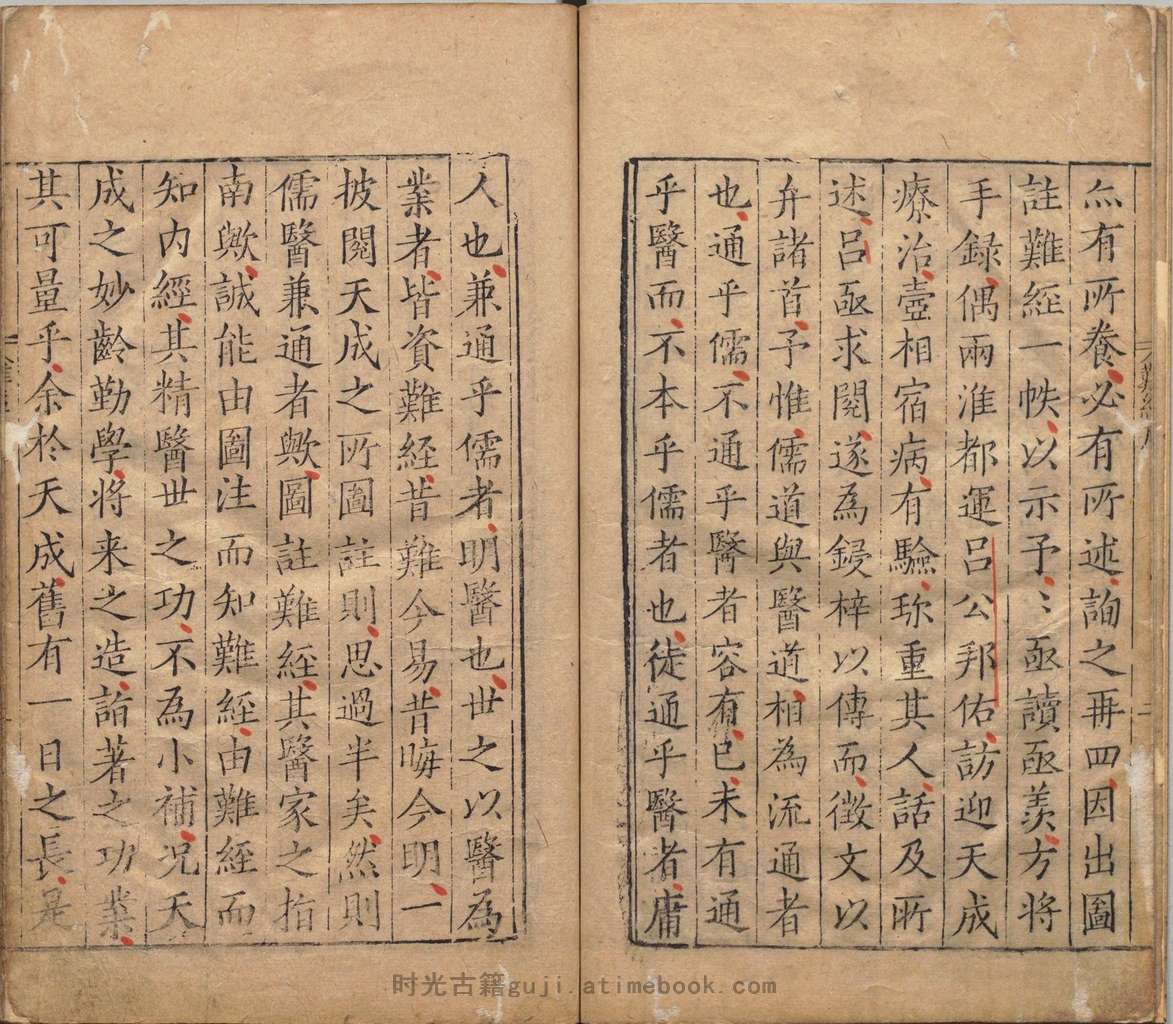 亦有所養必有所述詢之再四因出圖
註難經一帙以示予〻亟讀亟羨方將
手録偶兩淮都運吕公邦佑訪迎天成
療治臺相宿病有驗珎重其人話及所
述吕亟求閱遂為鋟梓以傳而徵文以
弁諸首予惟儒道與醫道相為流通者
也通乎儒不通乎醫者容有已未有通
乎醫而不本乎儒者也徒通乎醫者庸
人也兼通乎儒者明醫也世之以醫為
業者皆資難經昔難今易昔晦今明一
披閱天成之所圖註則思過半矣然則
儒醫兼通者歟圖註難經其醫家之指
南歟誠能由圖注而知難經由難經而
知内經其精醫世之功不為小補况天
成之妙齡勤學将来之造詣著之功業
其可量乎余於天成舊有一日之長是
難經序
二
时光古籍guji.atimebook.com